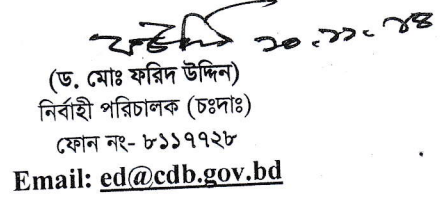 ২০.১১.১৪
(ড. মোঃ ফরিদ উদ্দিন)
নির্বাহী পরিচালক (চঃদাঃ)
ফোন নং- ৮১১৭৭২৮
Email: ed@cdb.gov.bd